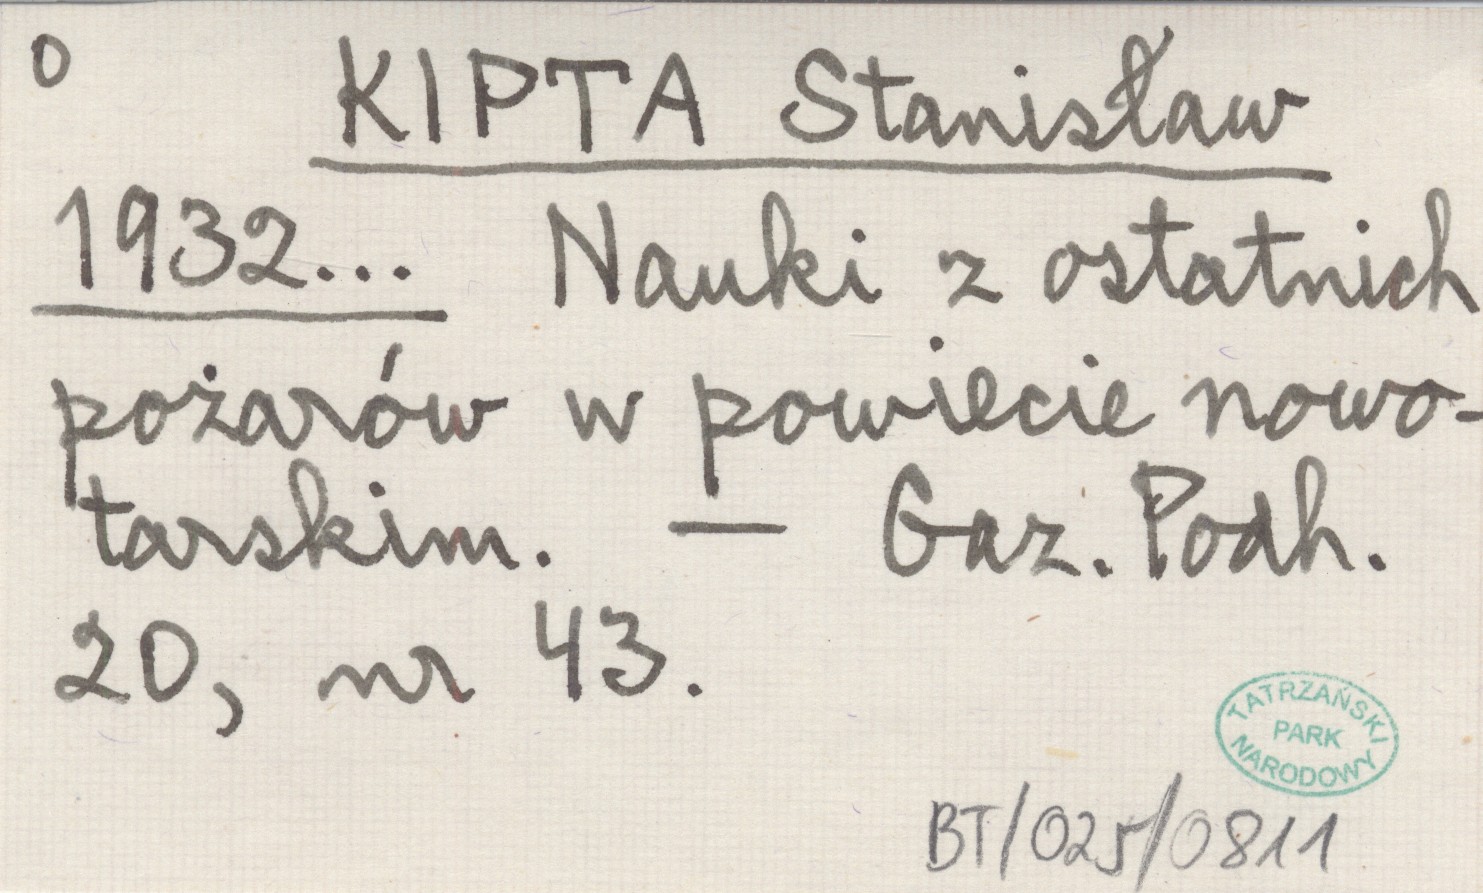 0 KIPTA Stanisław
1932... Nauki z ostatnich
pożarów w powiecie nowo-
tarskim. — Gaz. Podh.
20, nr 43.
TATRZAŃSKI
PARK
NARODOWY
BT/025/0811